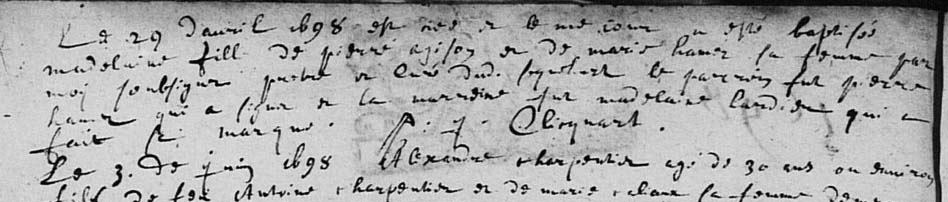 Le 29 d'auril 1698 est née et le me jour a esté baptisée
madelaine fille de pierre et de marie hauet sa femme par
moy soubsigné prebtre et curé dud. le parrein fut pierre
hauet qui a signé et la marreine fut madelaine lardier qui a
fait sa marque. Clicquart.
Le 3. de juin 1698 Alexandre charpentier agé de 30 ans ou environ
fils de feu Antoine charpentier et de marie sa femme